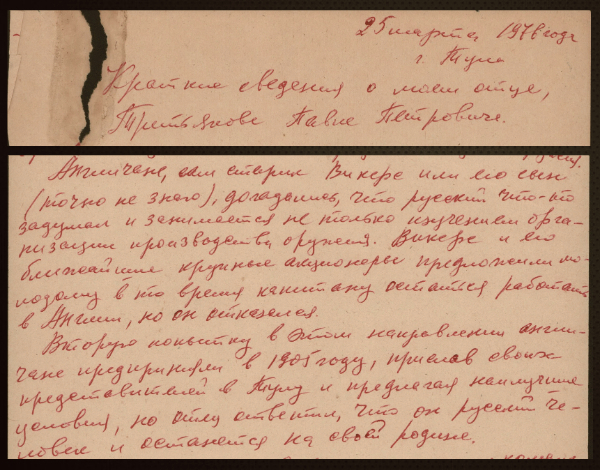 25 марта 1978 года
г. Тула
Краткие сведения о моем отце,
Третьякове Павле Петровиче.
Англичане, сам старик Викерс или его сын
(точно не знаю), догадались, что русский что-то
задумал и занимается не только изучением орга-
низации производства оружия. Викерс и его
ближайшие крупные акционеры предложили мо-
лодому в то время капитану остаться работать
в Англии, но он отказался.
Вторую попытку в этом направлении англи-
чане предприняли в 1905 году, прислав своих
представителей в Тулу и предлагая наилучшие
условия, но отец ответил, что он русский че-
ловек и останется на своей родине.